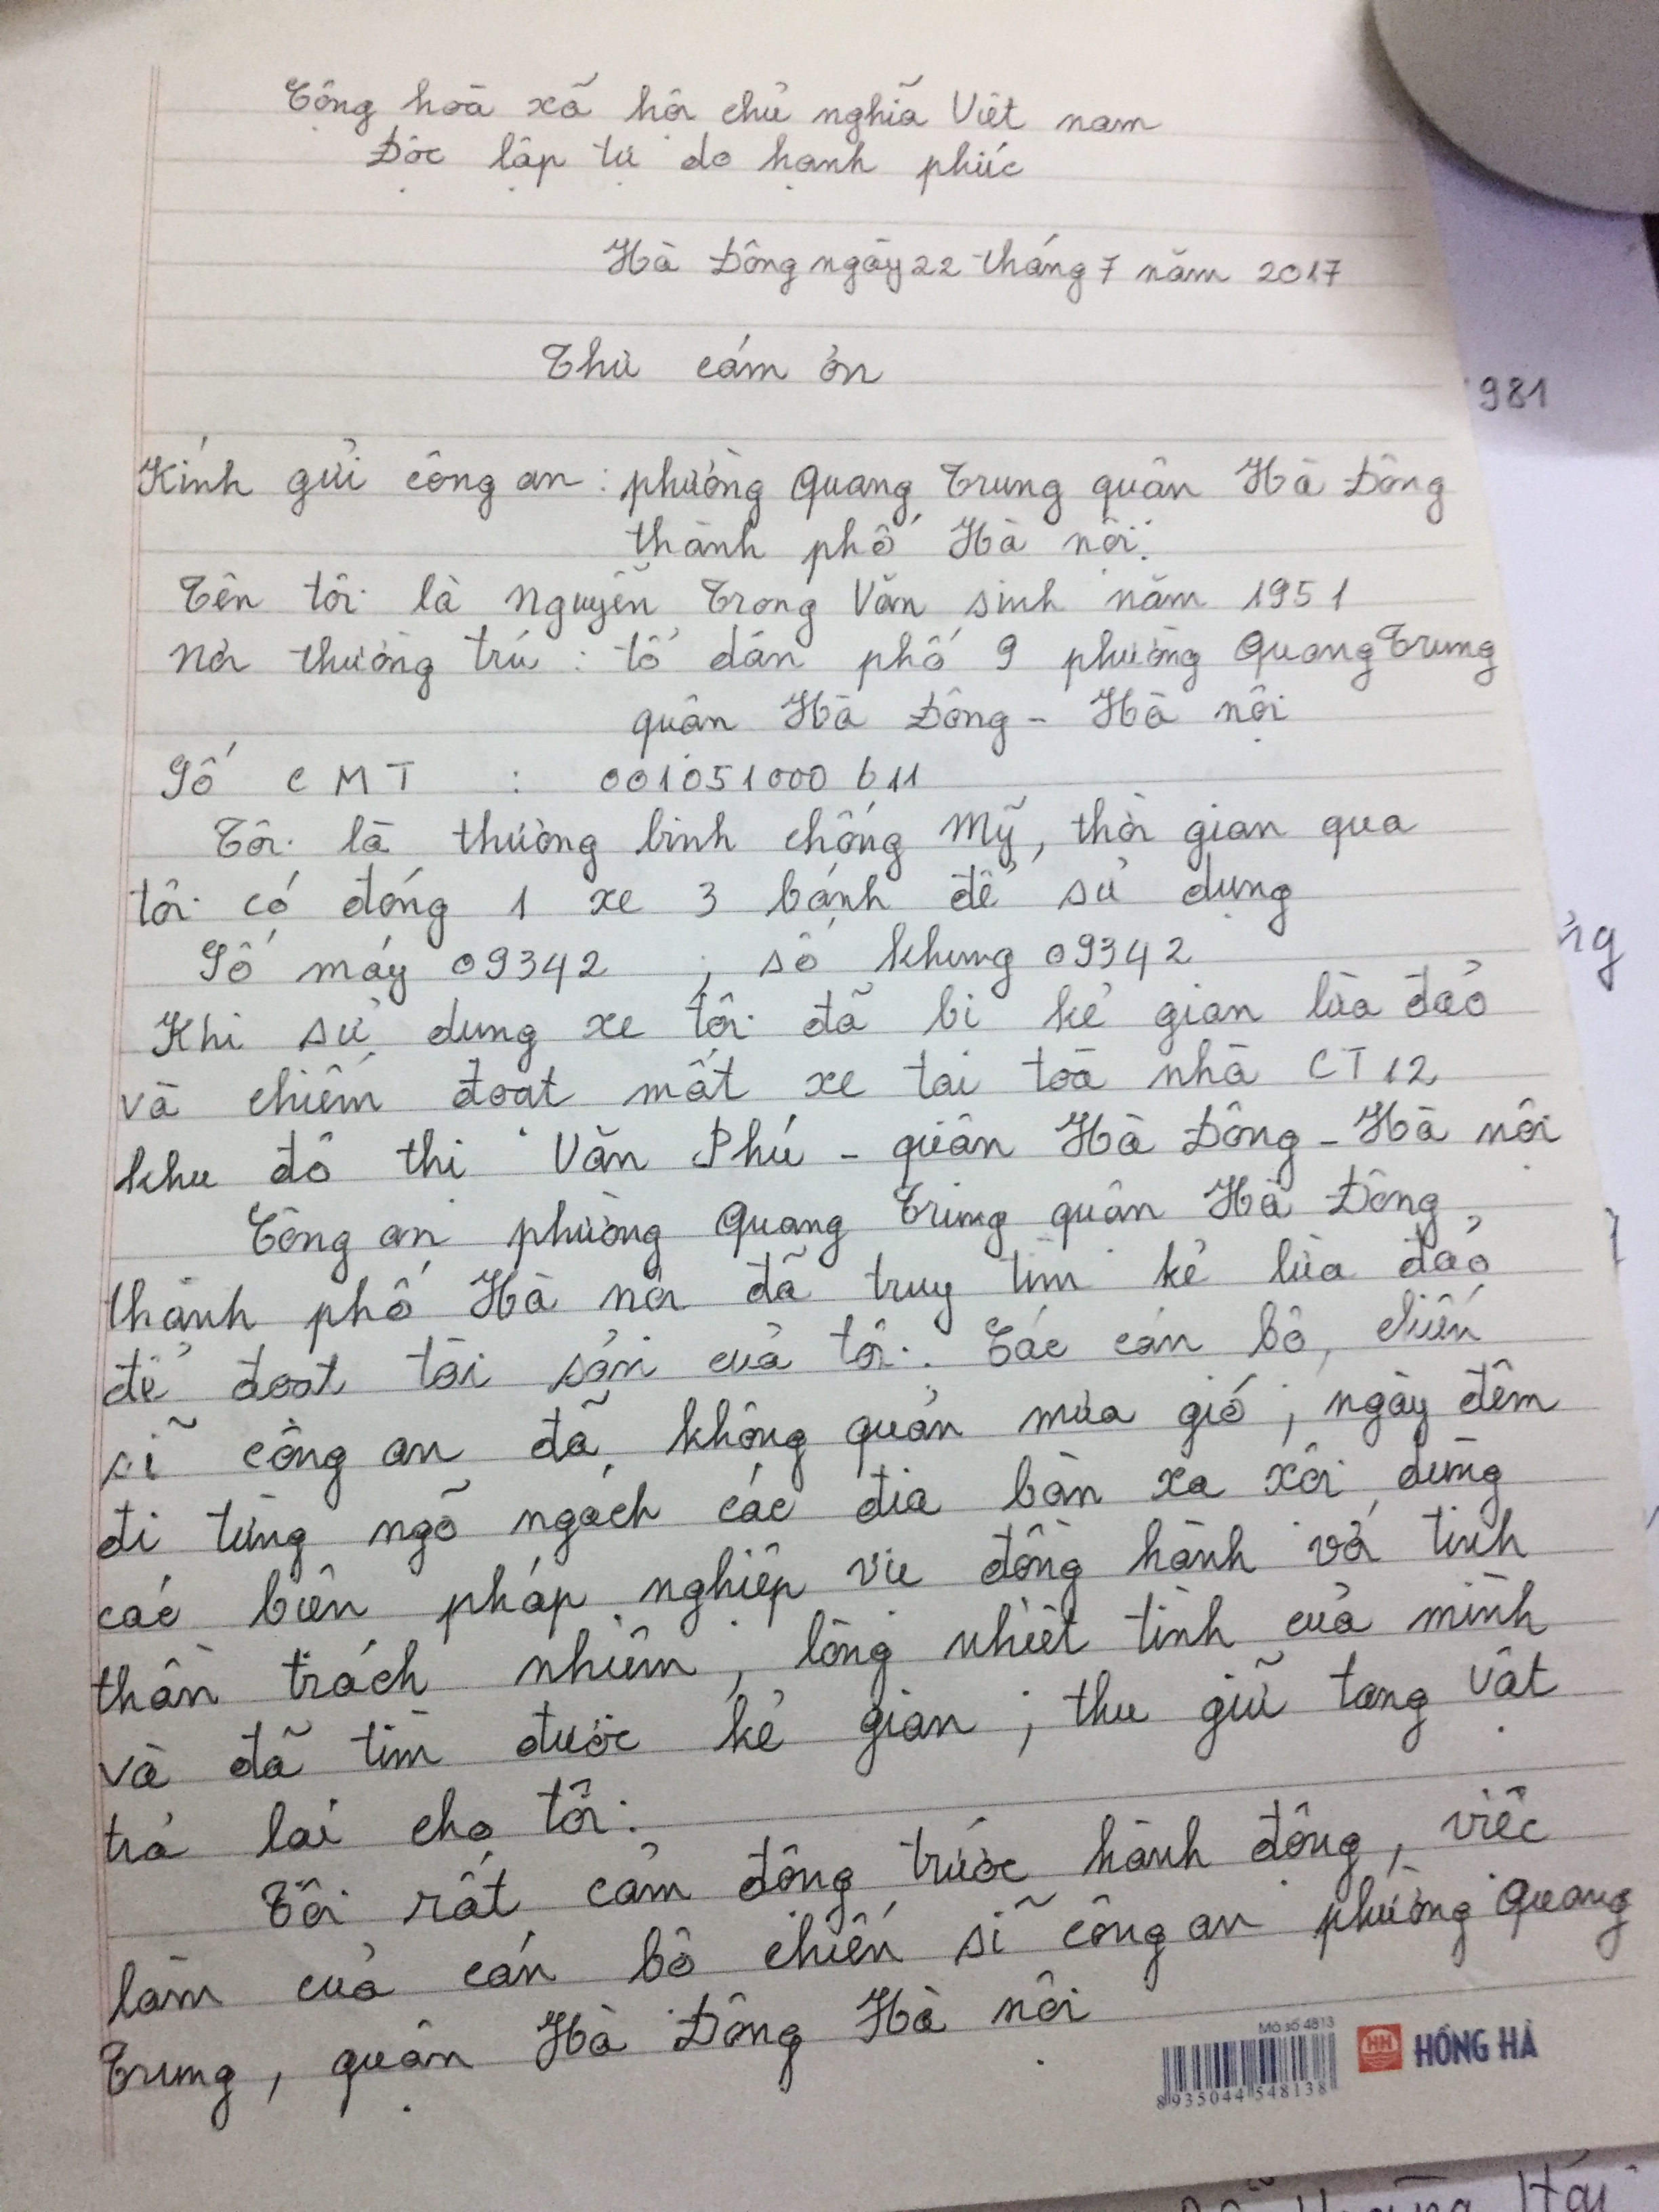 Cộng hoà xã hội chủ nghĩa Việt nam
Độc lập tự do hạnh phúc
Hà Đông ngày 22 tháng 7 năm 2017
Thư cám ơn
981
Kính gửi công an : phường Quang Trung quận Hà Đông
thành phố Hà nội.
Tên tôi là Nguyễn Trọng Văn sinh năm 1951
Nơi thường trú : tổ dân phố 9 phường Quang Trung
quận Hà Đông - Hà nội
Số CMT : 001051000611
Tôi là thương binh chống Mỹ, thời gian qua
tôi có đóng 1 xe 3 bánh để sử dụng
Số máy 09342 ; số khung 09342
Khi sử dụng xe tôi đã bị kẻ gian lừa đảo
và chiếm đoạt mất xe tại toà nhà CT12
khu đô thị Văn Phú - quận Hà Đông - Hà nội
Công an phường Quang Trung quận Hà Đông
thành phố Hà nội đã truy tìm kẻ lừa đảo
để đoạt tài sản của tôi. Các cán bộ, chiến
sĩ công an đã không quản mưa gió, ngày đêm
đi từng ngõ ngách các địa bàn xa xôi dùng
các biện pháp nghiệp vụ đồng hành với tinh
thần trách nhiệm, lòng nhiệt tình của mình
và đã tìm được kẻ gian ; thu giữ tang vật
trả lại cho tôi.
Tôi rất cảm động trước hành động, việc
làm của cán bộ chiến sĩ công an phường Quang
Trung, quận Hà Đông Hà nội
Mã số 4813
8935044548138
HH
HỒNG HÀ